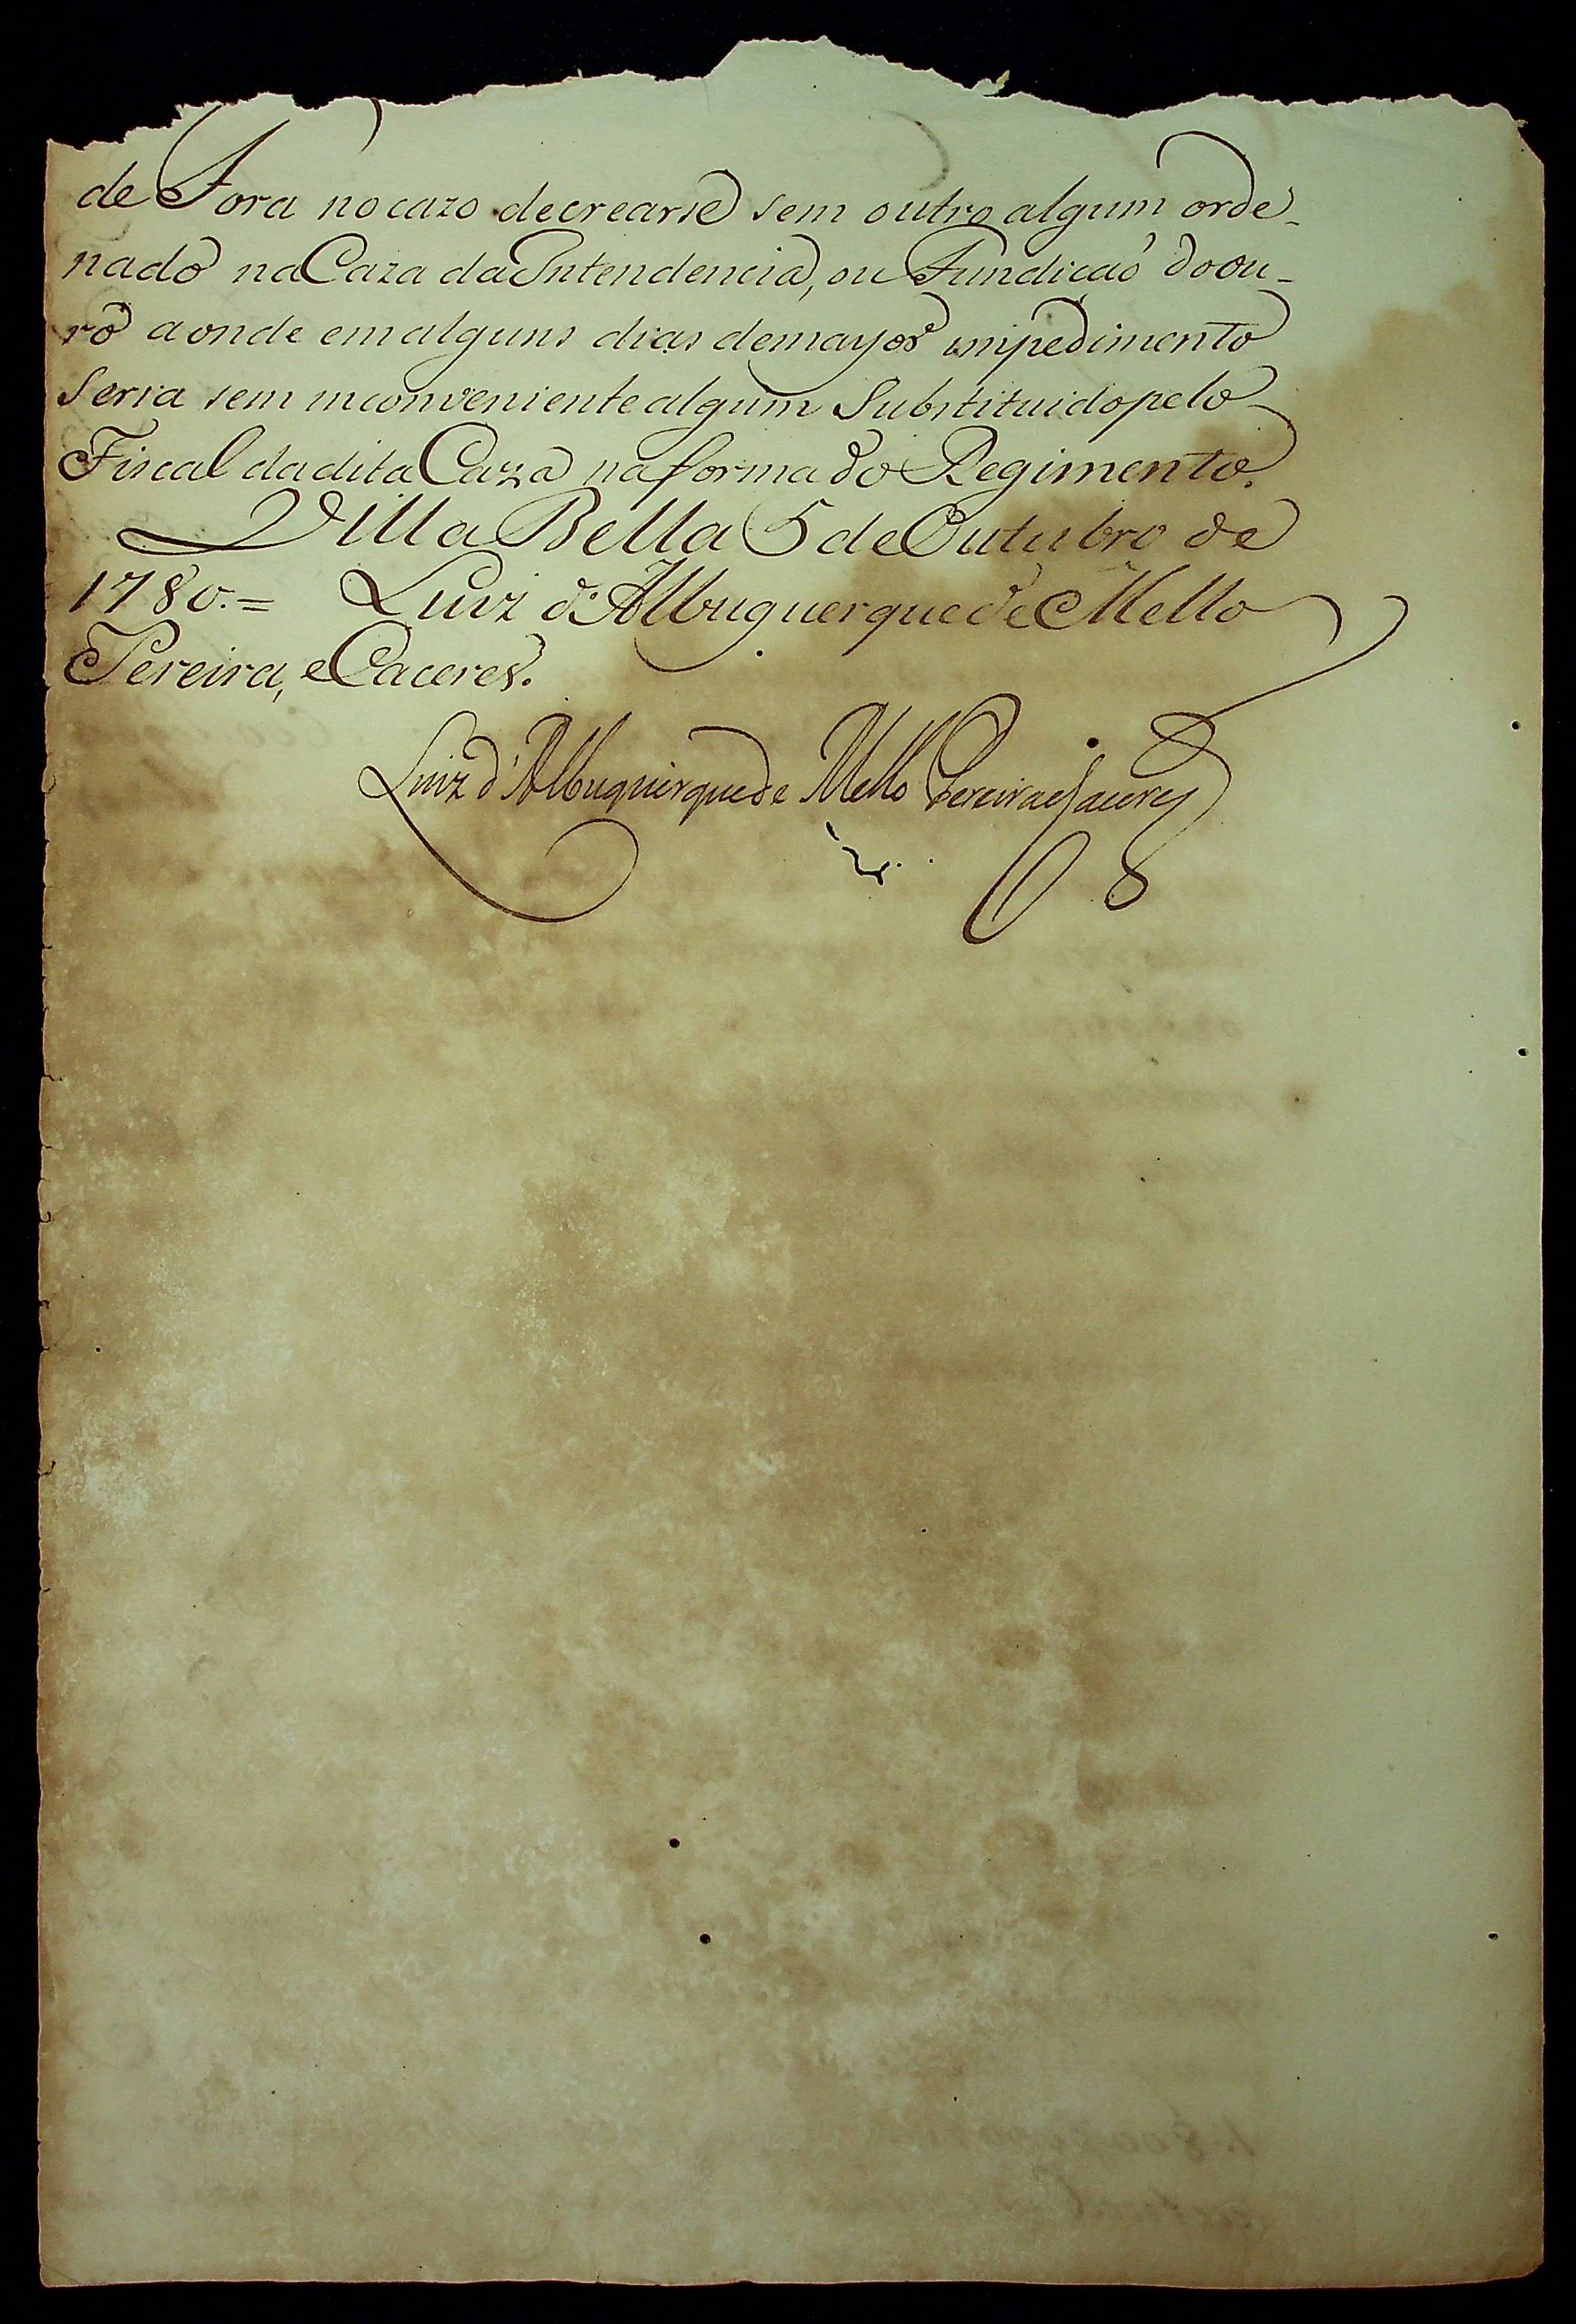 de Fora no cazo de crearse sem outro algum orde-
nado na Caza da Intendencia, ou Fundicaõ do ou-
ro aonde em alguns dias de mayor impedimento
seria sem inconveniente algum Substituido pelo
Fiscal da dita Caza na forma do Regimento.
Villa Bella 5 de Outubro de
1780.= Luiz d'Albuquerque de Mello
Pereira, e Caceres.
Luiz d'Albuquerque de Mello Pereira e Caceres